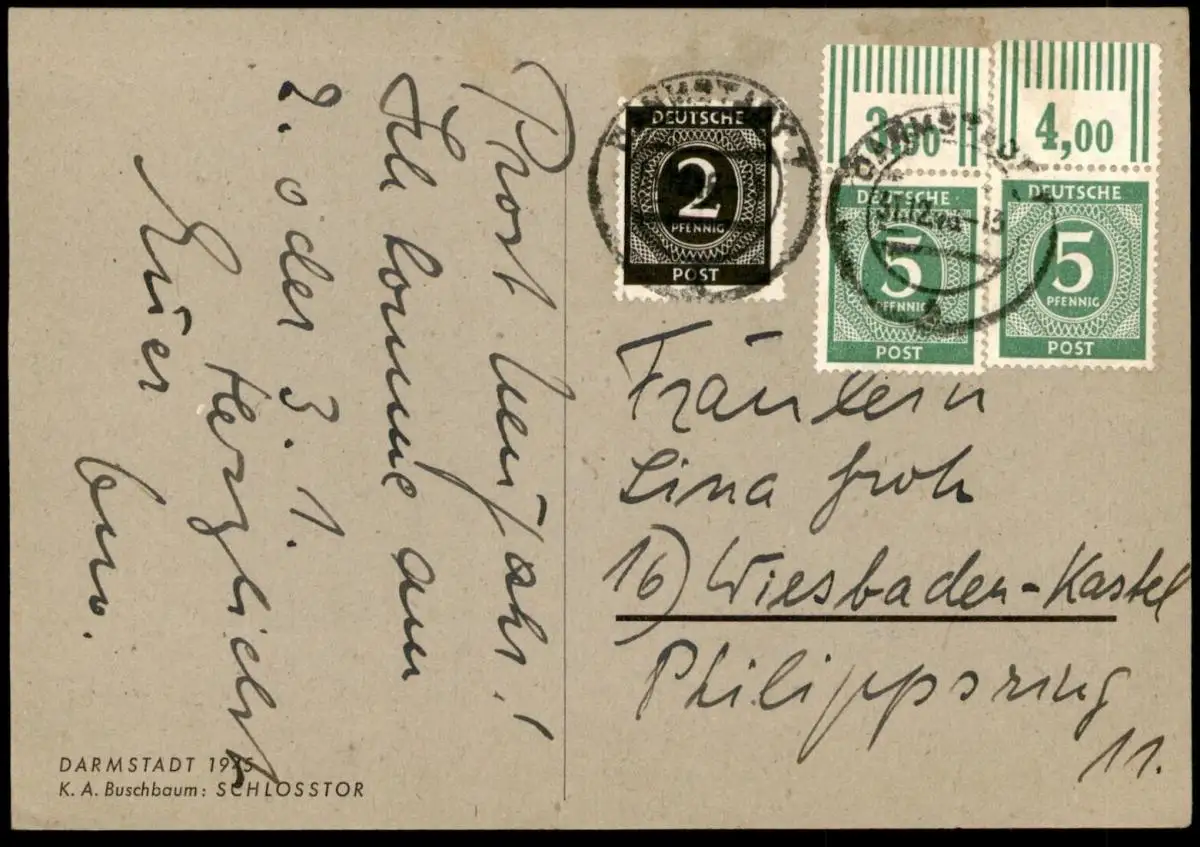 Prost Neujahr!
Ich komme am
2. oder 3. 1.
Herzlichst
Euer
DARMSTADT 1945
K. A. Buschbaum: SCHLOSSTOR
DEUTSCHE
2
PFENNIG
POST
DARMSTADT
3,00
4,00
DARMSTADT
31.12.46-13
DEUTSCHE
5
PFENNIG
POST
DEUTSCHE
5
PFENNIG
POST
Fräulein
Lina Groh
16) Wiesbaden-Kastel
Philippsring
11.